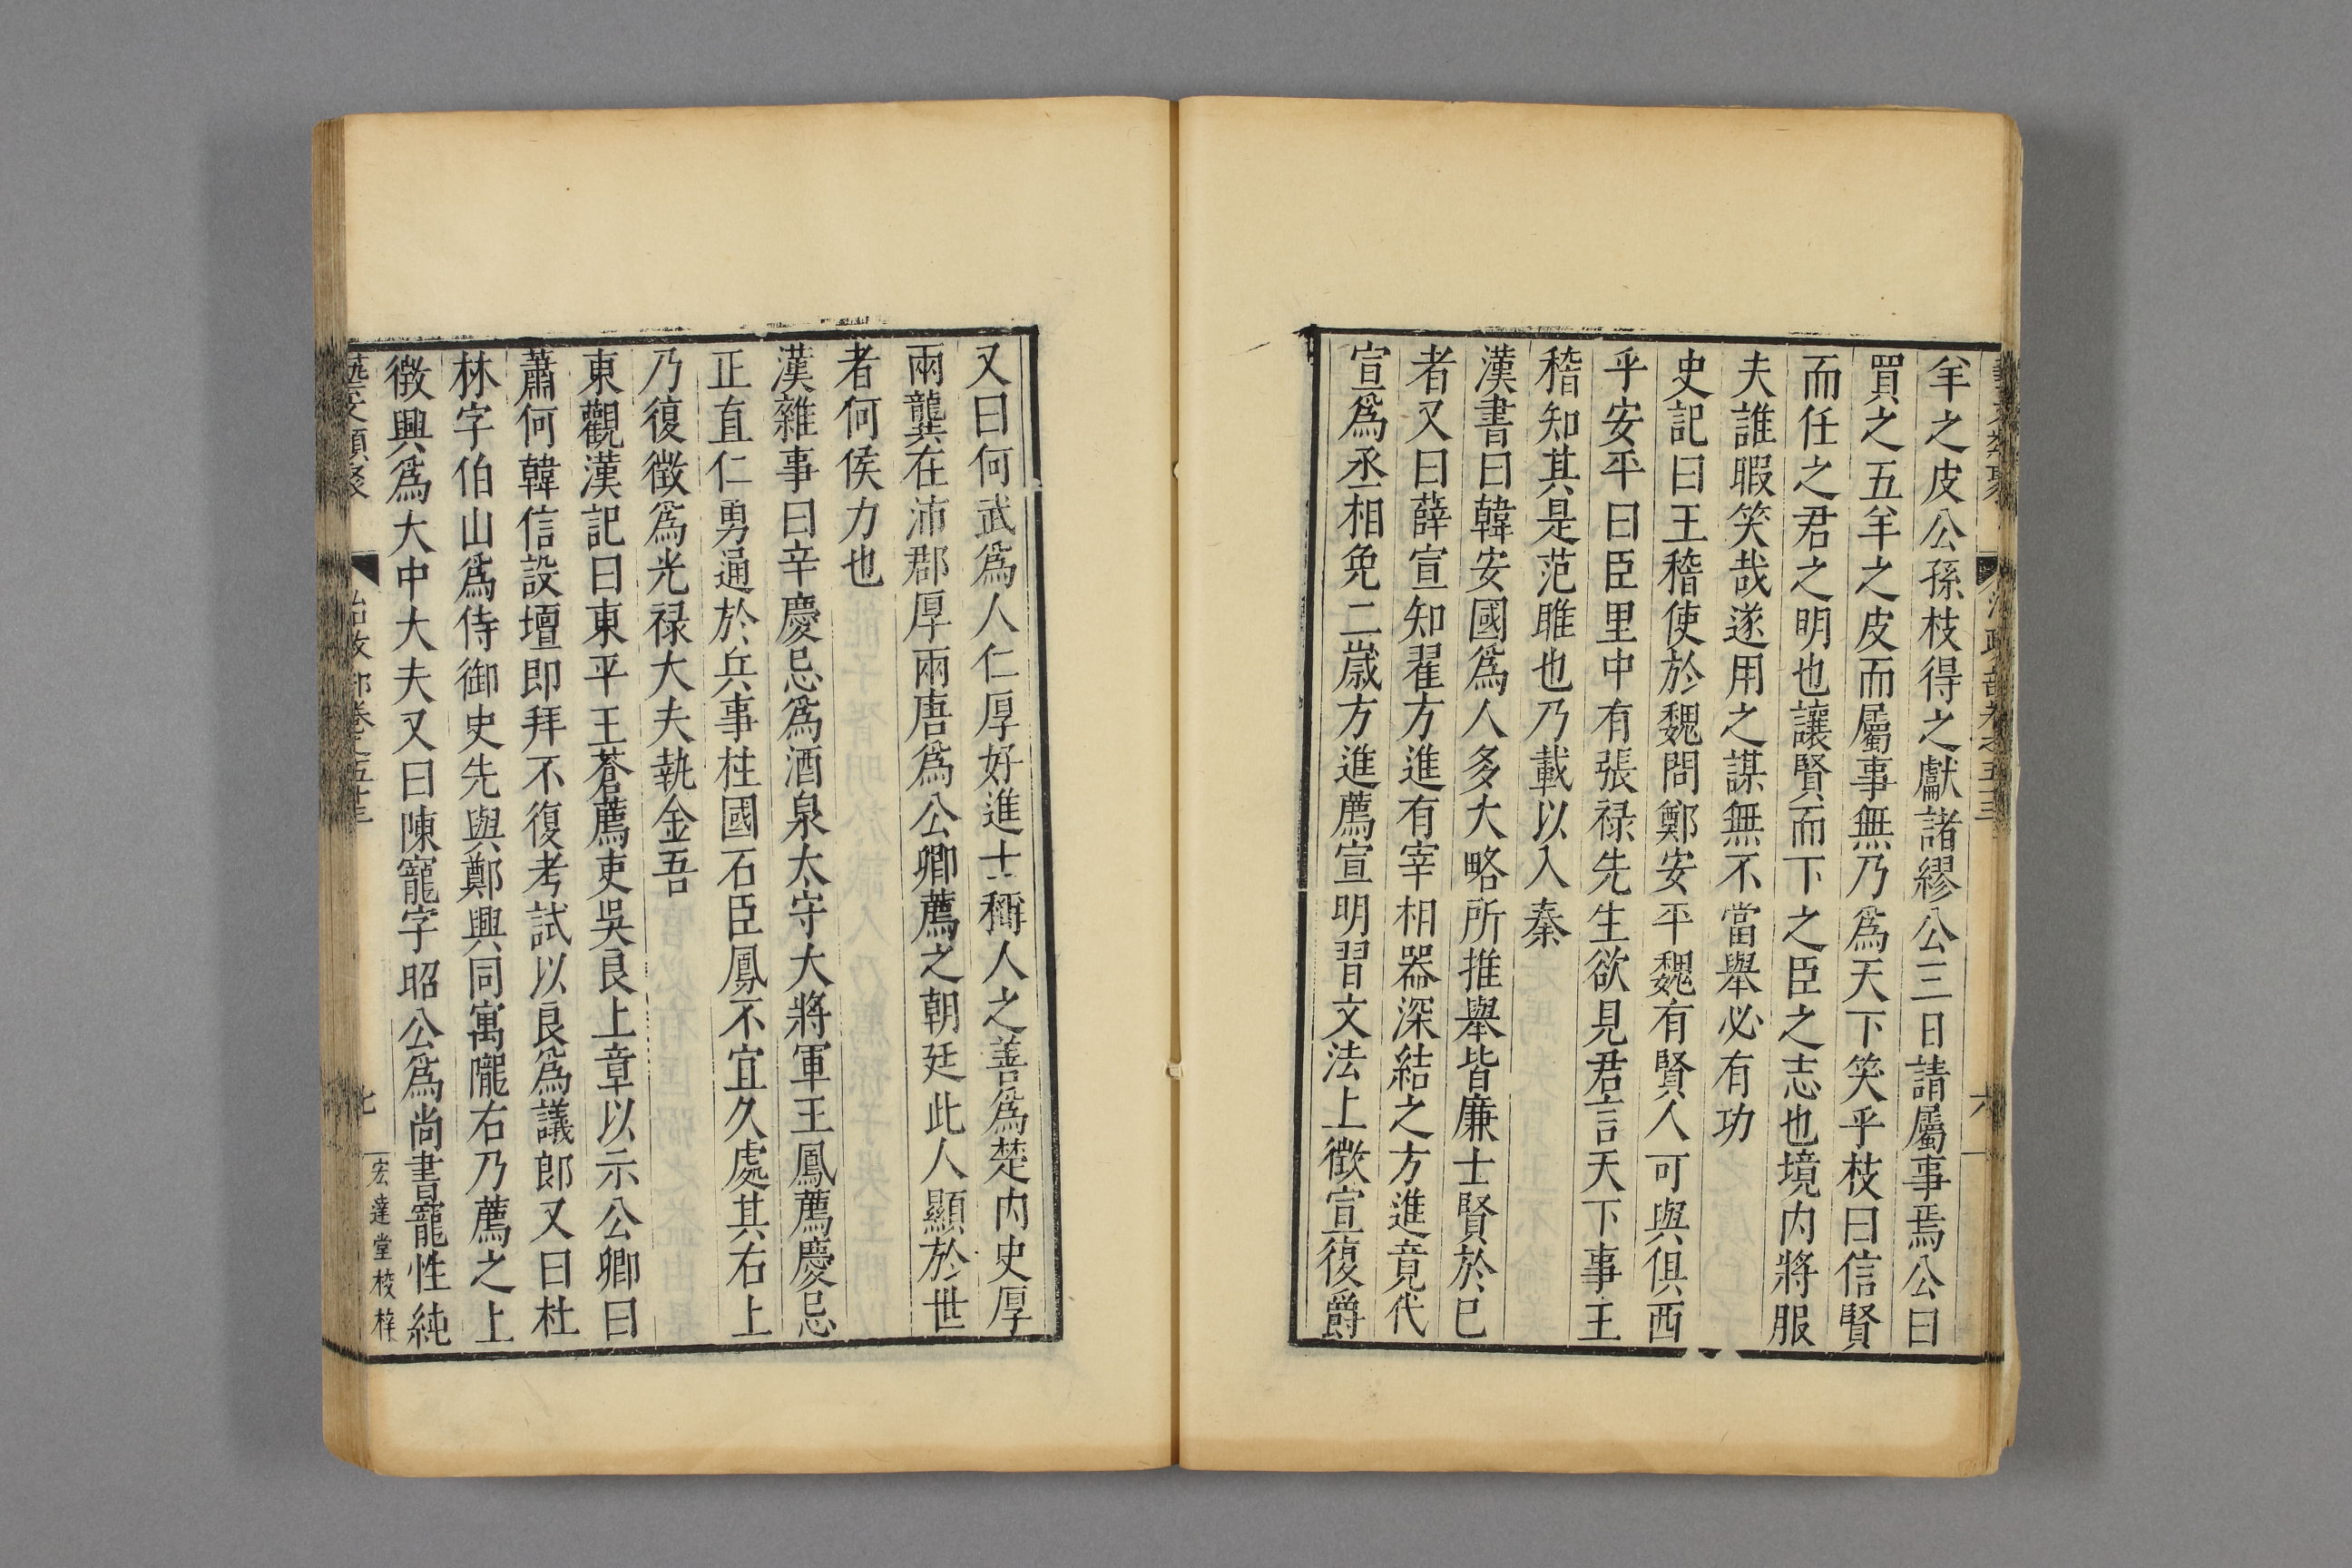 羊之皮公孫枝得之獻諸繆公三日請屬事焉公曰
買之五羊之皮而屬事無乃爲天下笑乎枝曰信賢
而任之君之明也讓賢而下之臣之志也境内將服
夫誰暇笑哉遂用之謀無不當舉必有功
史記曰王稽使於魏問鄭安平魏有賢人可與俱西
乎安平曰臣里中有張禄先生欲見君言天下事王
稽知其是范雎也乃載以入秦
漢書曰韓安國爲人多大略所推舉皆廉士賢於已
者又曰薛宣知翟方進有宰相器深結之方進竟代
宣爲丞相免二歳方進薦宣明習文法上徵宣復爵
又曰何武爲人仁厚好進士稱人之善爲楚内史厚
兩龔在沛郡厚兩唐爲公卿薦之朝廷此人顯於世
者何侯力也
漢雜事曰辛慶忌爲酒泉太守大將軍王鳳薦慶忌
正直仁勇通於兵事柱國石臣鳳不宜久處其右上
乃復徵爲光禄大夫執金吾
東觀漢記曰東平王蒼薦吏吳良上章以示公卿曰
蕭何韓信設壇即拜不復考試以良爲議郎又曰杜
林字伯山爲侍御史先與鄭興同寓隴右乃薦之上
徵興爲大中大夫又曰陳寵字昭公爲尚書寵性純
七
宏達堂校梓